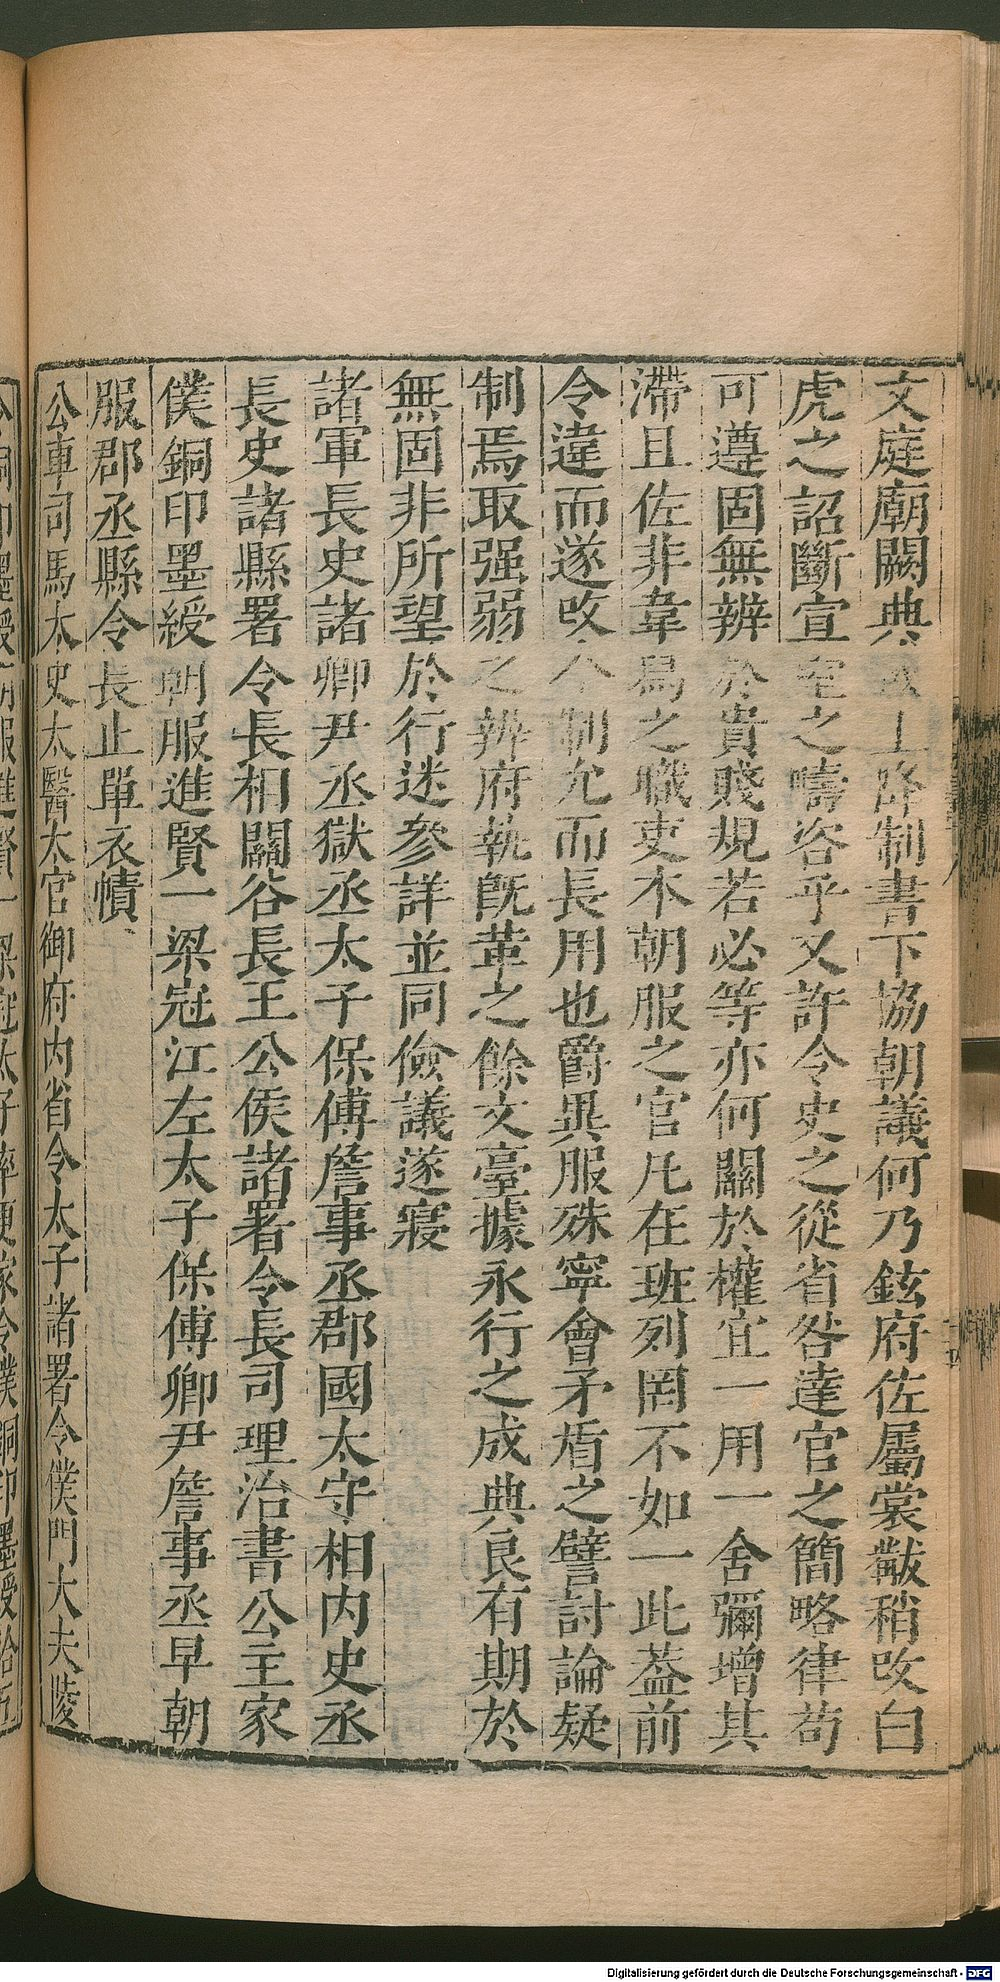 文庭廟闕典上降制書下協朝議何乃鉉府佐屬裳黻稍改白
虎之詔斷宣室之疇咨乎又許令史之從省咎達官之簡略律苟
可遵固無辨於貴賤規若必等亦何關於權宜一用一舍彌增其
滯且佐非韋爲之職吏本朝服之官凡在班列罔不如一此葢前
令違而遂改今制允而長用也爵異服殊寧會矛盾之譬討論疑
制焉取强弱之辨府執旣革之餘文臺據永行之成典良有期於
無固非所望於行迷參詳並同儉議遂寢
諸軍長史諸卿尹丞獄丞太子保傅詹事丞郡國太守相内史丞
長史諸縣署令長相關谷長王公侯諸署令長司理治書公主家
僕銅印墨綬朝服進賢一梁冠江左太子保傅卿尹詹事丞早朝
服郡丞縣令長止單衣幘
公車司馬太史太醫太官御府内省令太子諸署令僕門大夫陵
Digitalisierung gefördert durch die Deutsche Forschungsgemeinschaft - DFG